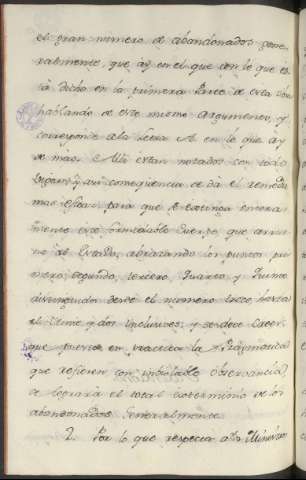 el gran numero de abandonados gene-
ralmente, que ay con el que con lo que es-
tá dicho en la primera Parte de esta obra
hablando de este mismo Argumento, y
corresponde a la letra A en lo que ay
de mas. Alli estan notados con todo
y en consequencia se dá el remedio
mas eficaz para que se extinga entera-
mente este formidable Cuerpo, que arrui-
na al Estado, abrazando los puntos pri-
mero, segundo, tercero, quarto, y quinto
desde el numero trece hasta
el veinte y dos inclusives, y se deve creer,
que puesta en practica la Pragmatica
que refieren con inviolable observancia,
se lograrà el total exterminio de los
abandonados Generalmente.
2. Por lo que respecta a los